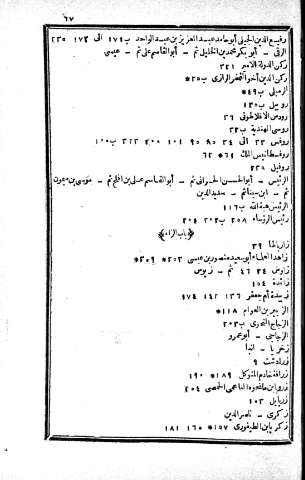 ٦٧
رفيع الدين الجيلي أبو حامد عبد العزيز بن عبد الواحد ب ١٧١ الى ١٧٣ ٢٣٥
الرقي - أبو بكر محمد بن الخليل ثم - أبو القاسم علي ثم - عيسى
ركن الدولة الامير ٣٢١
ركن الدين أخو الفخر الرازي ب ٢٥*
الرملي ب ٤٩*
روبيل ب ١٣٥
رودس الافلاطوني ٣٦
روسي الهندية ب ٣٣
روفس ٣٣ الى ٣٤ ٨٥ ٩٥ ١٠١ ٢٠٨ ٣٢٣ ب ١٠٠
روفسطانيس الملك ٦١* ٦٢
روفيل ٢٣٨
الرئيس - أبو الحسن الحراني ثم - أبو القاسم علي بن افلح ثم - موسى بن ميمون
ثم - ابن سينا ثم - سديد الدين
الرئيس هبة الله ب ١١٦
رئيس الرؤساء ٢٥٨ ب ٢٠٢ ٢٠٤
﴿باب الزاء﴾
زاربالما ٣٩
زاهد العلماء أبو سعيد منصور بن عيسى ٢٥٣* ٢٥٩*
زاوش ٢٤ ٤٦ ثم - زيوس
زائدة ١٥٤
زبيدة أم جعفر ١٣٦ ١٤٢ ١٧٤
الزبير بن العوام ١١٨*
الزجاج النحوي ب ٢٠٣
الزجاجي - أبو عمرو
زخريا - اندا
زرادشت ٩
زرافة خادم المتوكل ١٨٩* ١٩٠
زروبا بن مانحوه الناعمي الحمصي ٢٠٤
زريابيل ١٠٣
زكري - ناصر الدين
زكريا بن الطيفوري ١٥٧* ١٦٥ ١٨١